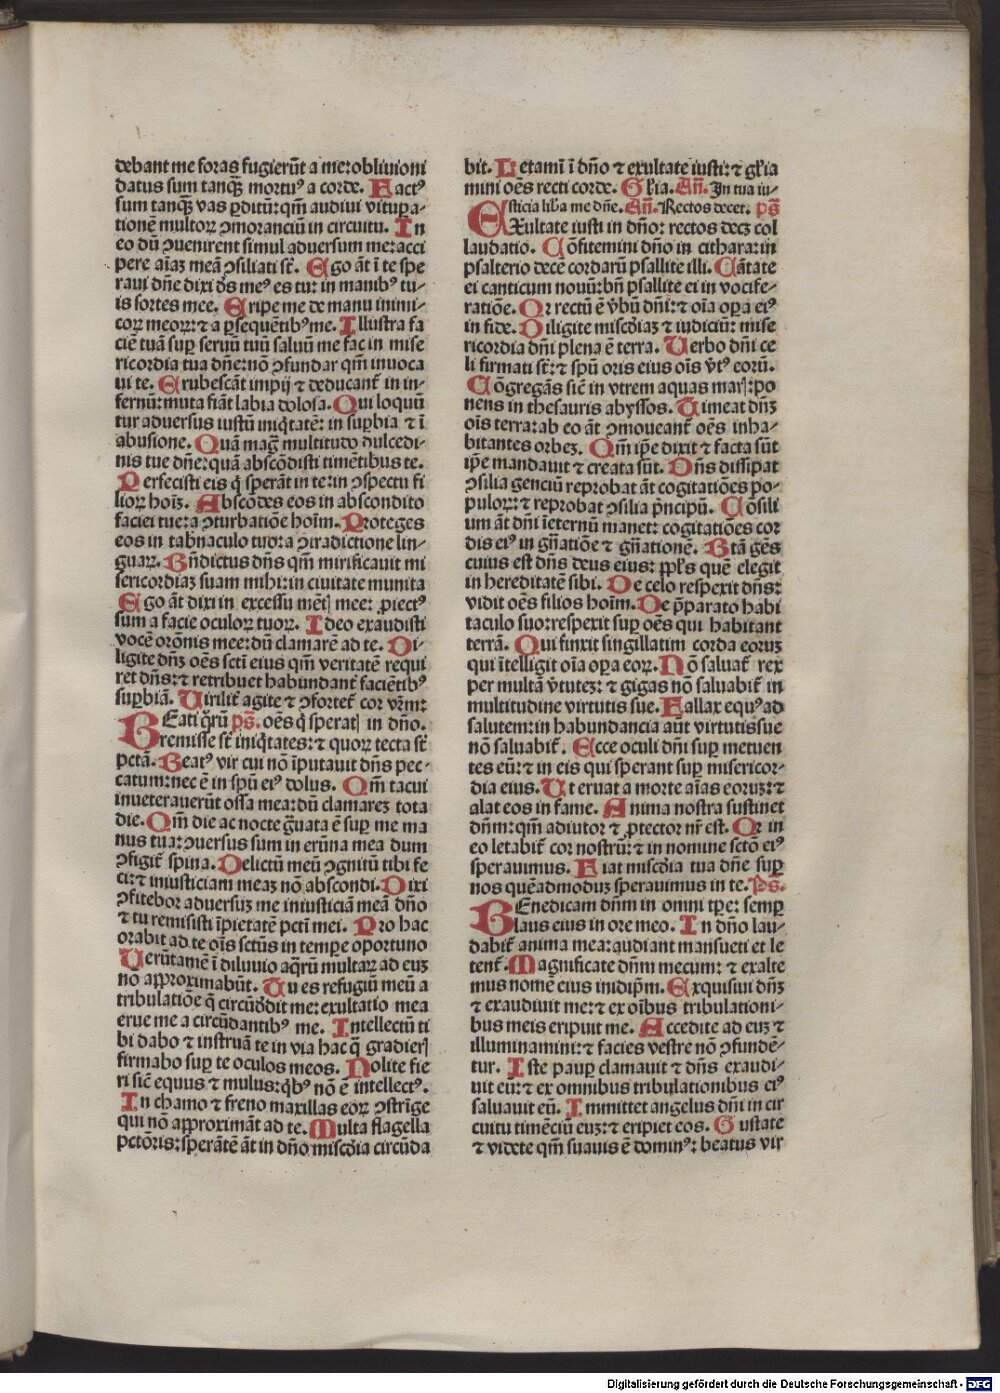 debant me foras fugierūt a me: obliuioni
datus sum tanqȝ mortuꝰ a corde. Factꝰ
sum tanqȝ vas ꝑditū: qm̄ audiui vitupa-
tionē multoꝝ ꝯmoranciū in circuitu. In
eo dū ꝯuenirent simul aduersum me: acci
pere aīaȝ meā ꝯsiliati st̄. Ego āt ī te spe
raui dn̄e dixi dꝰs meꝰ es tu: in manibꝰ tu-
is sortes mee. Eripe me de manu inimi-
coꝝ meoꝝ: ⁊ a ꝑsequētibꝰ me. Illustra fa
ciē tuā suꝑ seruū tuū saluū me fac in mise
ricordia tua dn̄e: nō ꝯfundar qm̄ inuoca
ui te. Erubescāt impij ⁊ deducant᷑ in in-
fernū: muta fiāt labia dolosa. Qui loquū
tur aduersus iustū iniq̇tatē: in suꝑbia ⁊ ī
abusione. Quā maḡ multitudo dulcedi-
nis tue dn̄e: quā abscōdisti timētibus te.
Perfecisti eis q̇ sperāt in te: in ꝯspectu fi
lioꝝ hoīȝ. Abscōdes eos in abscondito
faciei tue: a ꝯturbatiōe hoīm. Proteges
eos in tab̄naculo tuo: a ꝯtradictione lin-
guaꝝ. Bn̄dictus dn̄s qm̄ mirificauit mi
sericordiaȝ suam mihi: in ciuitate munita
Ego āt dixi in excessu mētꝭ mee: ꝓiectꝰ
sum a facie oculoꝝ tuoꝝ. Ideo exaudisti
vocē orōnis mee: dū clamarē ad te. Di-
ligite dn̄ȝ oēs sctī eius qm̄ veritatē requi
ret dn̄s: ⁊ retribuet habundant᷑ faciētibꝰ
suꝑbiā. Virilit᷑ agite ⁊ ꝯfortet᷑ cor vr̄m:
BEati q̇rū ps̄. oēs q̇ speratꝭ in dn̄o.
remisse st̄ iniq̇tates: ⁊ quoꝝ tecta st̄
pctā. Beatꝰ vir cui nō īputauit dn̄s pec-
catum: nec ē in spū eiꝰ dolus. Qm̄ tacui
inueterauerūt ossa mea: dū clamareȝ tota
die. Qm̄ die ac nocte g̈uata ē suꝑ me ma
nus tua: ꝯuersus sum in erūna mea dum
ꝯfigit᷑ spina. Delictū meū ꝯgnitū tibi fe
ci: ⁊ iniusticiam meaȝ nō abscondi. Dixi
ꝯfitebor aduersuȝ me iniusticiā meā dn̄o
⁊ tu remisisti īpietatē pctī mei. Pro hac
orabit ad te oīs sctūs in tempe oportuno
Verūtamē ī diluuio aq̄rū multaꝝ ad euȝ
no approximabūt. Tu es refugiū meū a
tribulatiōe q̄ circūdꝰdit me: exultatio mea
erue me a circūdantibꝰ me. Intellectū ti
bi dabo ⁊ instruā te in via hac q̄ gradierꝭ
firmabo suꝑ te oculos meos. Nolite fie
ri siē equus ⁊ mulus: q̇bꝰ nō ē intellectꝰ.
In chamo ⁊ freno maxillas eoꝝ ꝯstrīge
qui nō approximāt ad te. Multa flagella
pctōris: sperātē āt in dn̄o misc̄dia circūda
bit. Letami ī dn̄o ⁊ exultate iusti: ⁊ gl̄ia
mini oēs recti corde. Gl̄ia. An̄. In tua iu-
sticia lib̄a me dn̄e. An̄. Rectos decet. ps̄
EXultate iusti in dn̄o: rectos decȝ col
laudatio. Cōfitemini dn̄o in cithara: in
psalterio decē cordarū psallite illi. Cātate
ei canticum nouū: bn̄ psallite ei in vocife-
ratiōe. Qr rectū ē v̄bū dn̄i: ⁊ oīa oꝑa eiꝰ
in fide. Diligite misc̄diaȝ ⁊ iudiciū: mise
ricordia dn̄i plena ē terra. Verbo dn̄i ce
li firmati st̄: ⁊ spū oris eius oīs v̄tꝰ eorū.
Cōgregās siē in vtrem aquas marꝭ: po
nens in thesauris abyssos. Timeat dn̄ȝ
oīs terra: ab eo āt ꝯmoueant᷑ oēs inha-
bitantes orbeȝ. Qm̄ ip̄e dixit ⁊ facta sūt
ip̄e mandauit ⁊ creata sūt. Dn̄s dissipat
ꝯsilia genciū reprobat āt cogitatiōes po-
puloꝝ: ⁊ reprobat ꝯsilia pͥncipū. Cōsili
um āt dn̄i īeternū manet: cogitatiōes cor
dis eiꝰ in gn̄atiōe ⁊ gn̄atione. Btā gēs
cuius est dn̄s deus eius: ppl̄s quē elegit
in hereditatē sibi. De celo respexit dn̄s:
vidit oēs filios hoīm. De p̄parato habi
taculo suo: respexit suꝑ oēs qui habitant
terrā. Qui finxit singillatim corda eoruȝ
qui ītelligit oīa oꝑa eoꝝ. Nō saluat᷑ rex
per multā v̄tuteȝ: ⁊ gigas nō saluabit᷑ in
multitudine virtutis sue. Fallax equꝰ ad
salutem: in habundancia aūt virtutis sue
nō saluabit᷑. Ecce oculi dn̄i suꝑ metuen
tes eū: ⁊ in eis qui sperant suꝑ misericor-
dia eius. Ut eruat a morte aīas eoruȝ: ⁊
alat eos in fame. Anima nostra sustinet
dn̄m: qm̄ adiutor ⁊ ꝓtector nr̄ est. Qr in
eo letabit᷑ cor nostrū: ⁊ in nomine sctō eiꝰ
sperauimus. Fiat misc̄dia tua dn̄e suꝑ
nos quēadmoduȝ sperauimus in te. Ps̄.
BEnedicam dn̄m in omni tꝑe: semꝑ
laus eius in ore meo. In dn̄o lau-
dabit᷑ anima mea: audiant mansueti et le
tent᷑. Magnificate dn̄m mecum: ⁊ exalte
mus nomē eius inidip̄m. Exquisiui dn̄ȝ
⁊ exaudiuit me: ⁊ ex oībus tribulationi-
bus meis eripuit me. Accedite ad euȝ ⁊
illuminamini: ⁊ facies vestre nō ꝯfundē-
tur. Iste pauꝑ clamauit ⁊ dn̄s exaudi-
uit eū: ⁊ ex omnibus tribulationibus eiꝰ
saluauit eū. Immittet angelus dn̄i in cir
cuitu timēciū euȝ: ⁊ eripiet eos. Gustate
⁊ videte qm̄ suauis ē dominꝰ: beatus vir
Digitalisierung gefördert durch die Deutsche Forschungsgemeinschaft - DFG